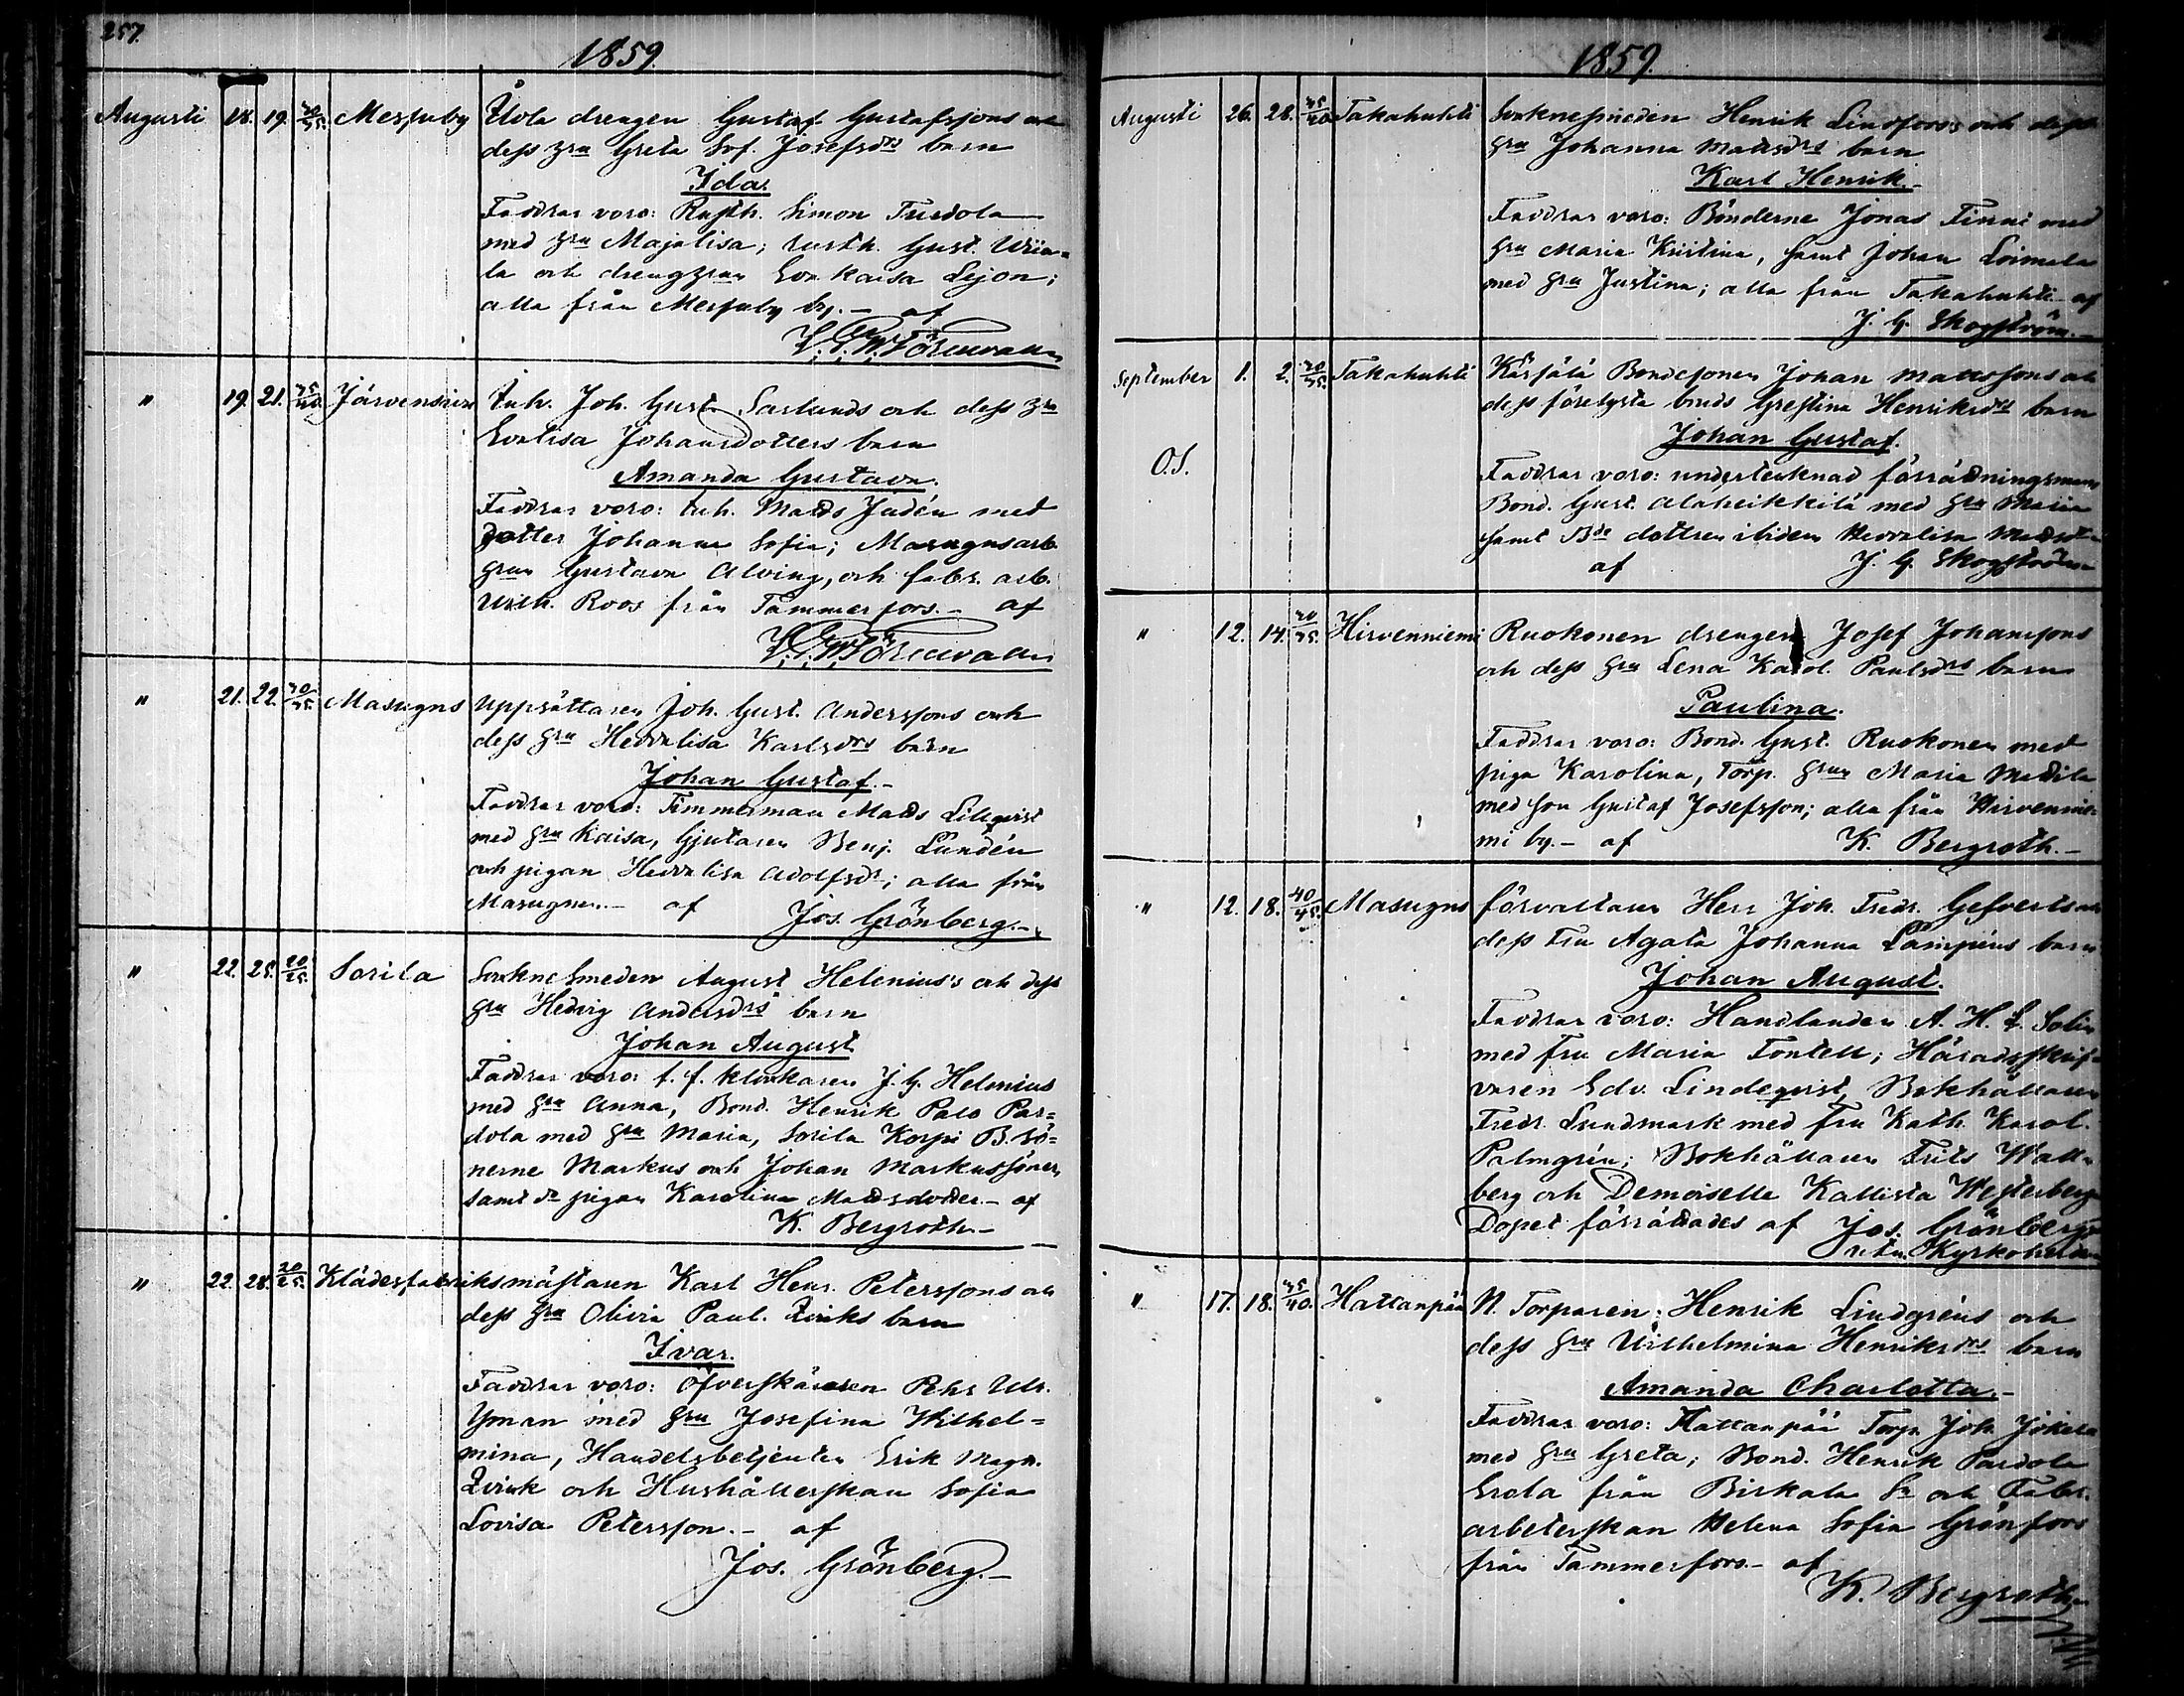 257.
1859.
Augusti 18. 19. 30/35. Messuby Åvla drengen Gustaf Gustafssons och
dess hru Greta Sof. Josefsdrs barn
Ida.
Faddrar voro: Rusth. Simon Turdola
med hru Majalisa; rusth. Gust. Wiia=
la och drenghrun Eva Kaisa Lejon;
alla från Messuby by.- af
" 19. 21. 35/40. Järvensivu Inh. Joh. Gust. Saslunds och dess hru
Evalisa Johansdotters barn
Amanda Gustava.
Faddrar voro: Inh. Matts Judén med
dotter Johanna Sofia; Masugnsarb.
hrun Gustava Alving, och fabr. arb.
Wilh. Roos från Tammerfors.- af
" 21. 22. 30/35. Masugns Uppsättaren Joh. Gust. Anderssons och
dess hru Heddalisa Karlsdrs barn
Johan Gustaf.-
Faddrar voro: Timmerman Matts Lillqvist
med hru Kaisa, Gjutaren Benj. Lundén
och pigan Heddalisa Adolfsdr; alla från
Masugnen.- af Jos. Grönberg.-
" 22. 25. 20/25. Sorila Sockne Smeden August Helenius's och dess
hru Hedvig Andersdrs barn
Johan August
Faddrar voro: t. f. klockaren J. G. Helenius
med hru Anna, Bond. Henrik Palo Par=
dola med hru Maria, Sorila Korpi B. sö=
nerne Markus och Johan Markussöner,
samt pigan Karolina Mattsdotter.- af
K. Bergroth.-
" 22. 28. 20/25. Klädesfabriksmästaren Karl Henr. Peterssons och
dess hru Olivia Paul. Qviks barn
Ivar.
Faddrar voro: Öfverskäraren Pehr Ulr.
Yman med hru Josefina Wilhel=
mina, Handelsbetjenten Erik Magn.
Qvick och Hushållerskan Sofia
Lovisa Petersson.- af
Jos. Grönberg.-
1859.
Augusti 26. 28. 35/40. Takahuhti Socknesmeden Henrik Lindfors's och dess
hru Johanna Mattsdrs barn
Karl Henrik.-
Faddrar voro: Bönderne Jonas Finni med
hru Maria Kristina, samt Johan Loimala
med hru Justina; alla från Takahuhti af
J. G. Skogström.-
September 1. 2. 30/35. Takahuhti Kärjälä Bondesonen Johan Mattssons och
dess förelysta bruds Grestina Henriksdrs barn
Johan Gustaf.
O.S.
Faddrar voro: undertecknad förrättningsman
Bond. Gust. Alaheikkilä med hru Maria
samt Bde dottren ibidem Heddalisa
af J. G. Skogström
" 12. 14. 30/35. Hirvenniemi Ruokonen drengen Josef Johanssons
och dess hru Lena Karol. Paulsdrs barn
Paulina.
Faddrar voro: Bond. Gust. Ruokonen med
piga Karolina, Torp. hrun Maria Mattila
med son Gustaf Josefsson; alla från Hirvennie=
mi by.- af K. Bergroth.-
" 12. 18. 40/45. Masugns förvaltaren Herr Joh. Fredr. Gefverts och
dess Fru Agata Johanna Lampéns barn
Johan August.
Faddrar voro: Handlanden A. H. L. Solin
med fru Maria Fontell; Häradsskrif=
varen Edv. Lindeqvist, Bokhållaren
Fredr. Lundmark med fru Kath. Karol.
Palmgrén; Bokhållaren Frits Wall=
berg och Demoiselle Kallista Westerberg
Dopet förrättades af Jos. Grönberg
Kyrkoherden
" 17. 18. 35/40. Hattanpää N. Torparen Henrik Lindgréns och
dess hru Wilhelmina Henriksdrs barn
Amanda Charlotta.-
Faddrar voro: Hattanpää Torp. Joh. Jokela
med hru Greta; Bond. Henrik Pardola
Erola från Birkala Sn och Fabr.
arbeterskan Helena Sofia Grönfors
från Tammerfors.- af
K. Bergroth.-